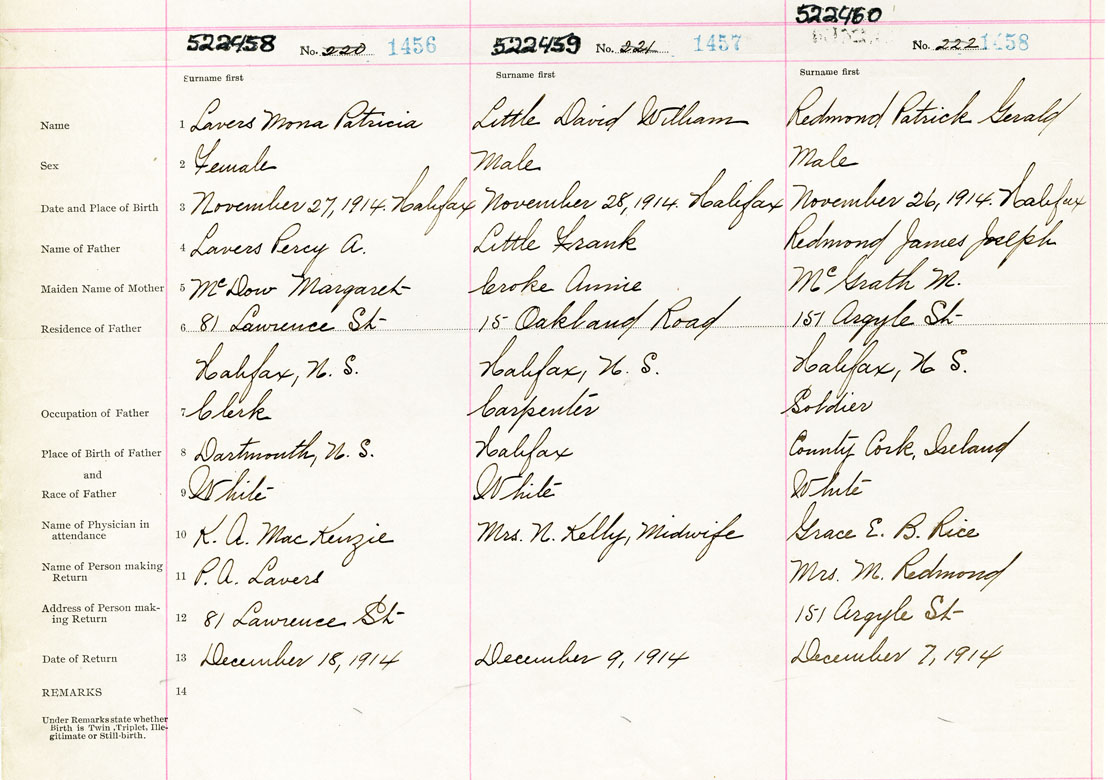 522460
522458 No. 220 1456 522459 No. 221 1457 No. 222 1458
Surname first Surname first Surname first
Name 1 Lavers Mona Patricia Little David William Redmond Patrick Gerald
Sex 2 Female Male Male
Date and Place of Birth 3 November 27, 1914. Halifax November 28, 1914. Halifax November 26, 1914. Halifax
Name of Father 4 Lavers Percy A. Little Frank Redmond James Joseph
Maiden Name of Mother 5 McDow Margaret Croke Annie McGrath M.
Residence of Father 6 81 Lawrence St 15 Oakland Road 151 Argyle St
Halifax, N. S. Halifax, N. S. Halifax, N S.
Occupation of Father 7 Clerk Carpenter Soldier
Place of Birth of Father 8 Dartmouth, N. S. Halifax County Cork, Ireland
and
Race of Father 9 White White White
Name of Physician in
attendance 10 K. A. MacKenzie Mrs. N. Kelly, Midwife Grace E. B. Rice
Name of Person making
Return 11 P. A. Lavers Mrs. M. Redmond
Address of Person mak-
ing Return 12 81 Lawrence St 151 Argyle St
Date of Return 13 December 18, 1914 December 9, 1914 December 7, 1914
REMARKS 14
Under Remarks state whether
Birth is Twin, Triplet, Ille-
gitimate or Still-birth.